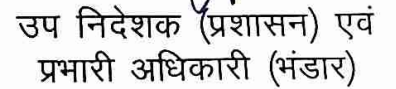 उप निदेशक (प्रशासन) एवं
प्रभारी अधिकारी (भंडार)